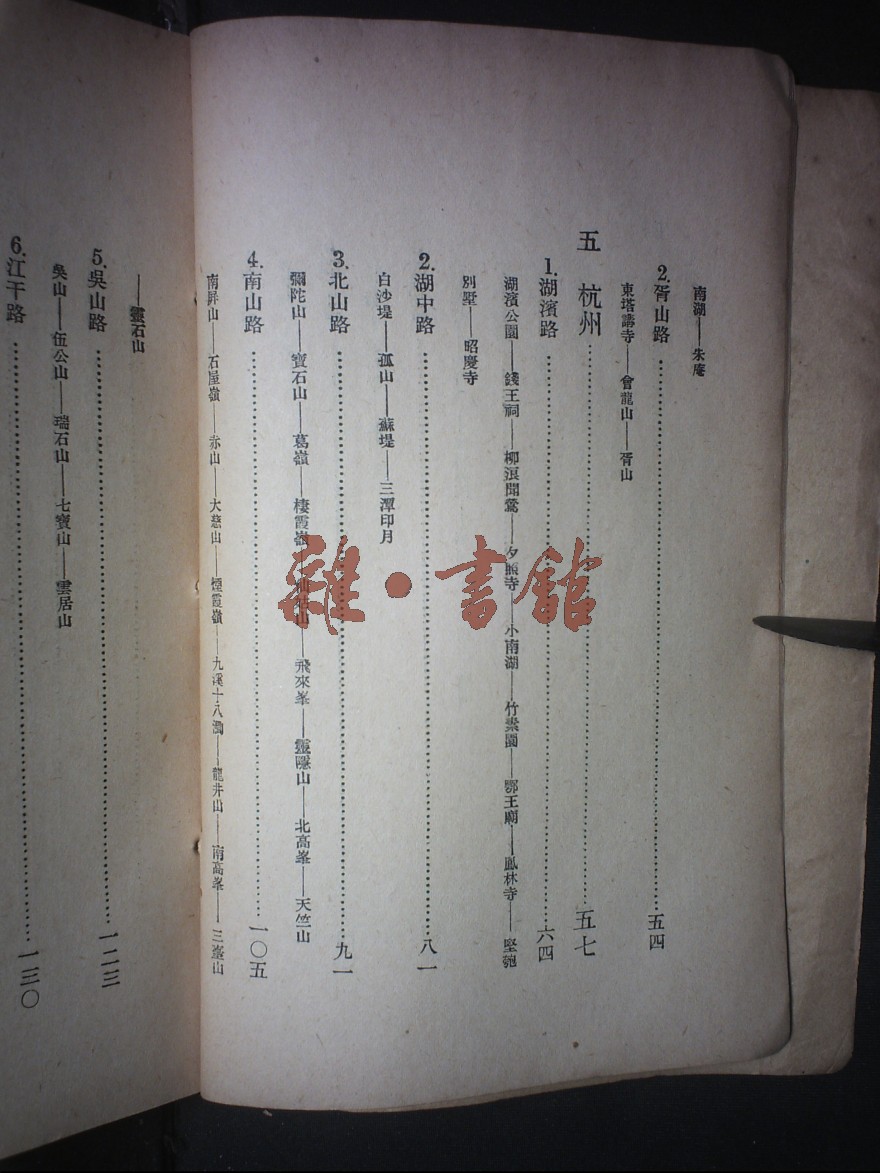 南湖——朱庵
2.胥山路⋯⋯⋯⋯⋯⋯五四
東塔講寺——會龍山——胥山
五 杭州⋯⋯⋯⋯⋯⋯五七
1.湖濱路⋯⋯⋯⋯⋯⋯六四
湖濱公園——錢王祠——柳浪聞鶯——夕照寺——小南湖——竹素園——鄂王廟——鳳林寺——堅匏
別墅——昭慶寺
2.湖中路⋯⋯⋯⋯⋯⋯八一
白沙堤——孤山——蘇堤——三潭印月
3.北山路⋯⋯⋯⋯⋯⋯九一
彌陀山——寶石山——葛嶺——棲霞嶺——仙姑山——飛來峯——靈隱山——北高峯——天竺山
4.南山路⋯⋯⋯⋯⋯⋯一〇五
南屏山——石屋嶺——赤山——大慈山——煙霞嶺——九溪十八澗——龍井山——南高峯——三臺山
——靈石山
5.吳山路⋯⋯⋯⋯⋯⋯一二三
吳山——伍公山——瑞石山——七寶山——雲居山
6.江干路⋯⋯⋯⋯⋯⋯一三〇
雜·書館